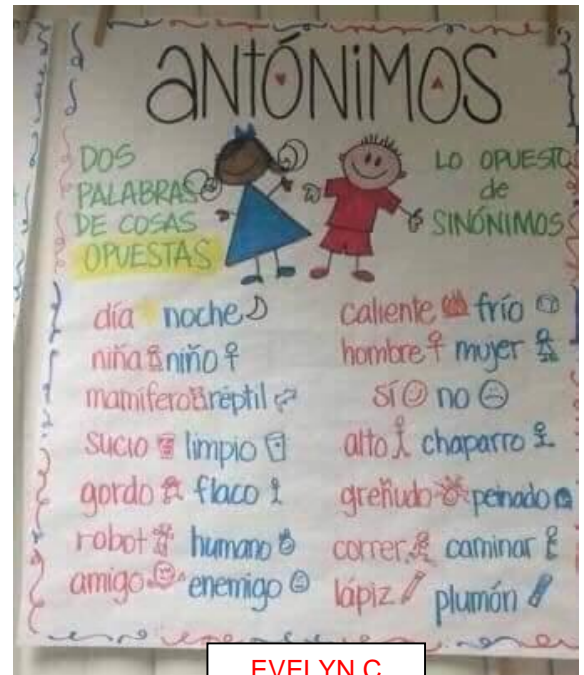 aNTÓNiMOS
DOS
PALABRAS
DE COSAS
OPUESTAS
LO OPUESTO
de
SINÓNIMOS
día noche
niña niño
mamífero réptil
sucio limpio
gordo flaco
robot humano
amigo enemigo
caliente frío
hombre mujer
sí no
alto chaparro
greñudo peinado
correr caminar
lápiz plumón
EVELYN C